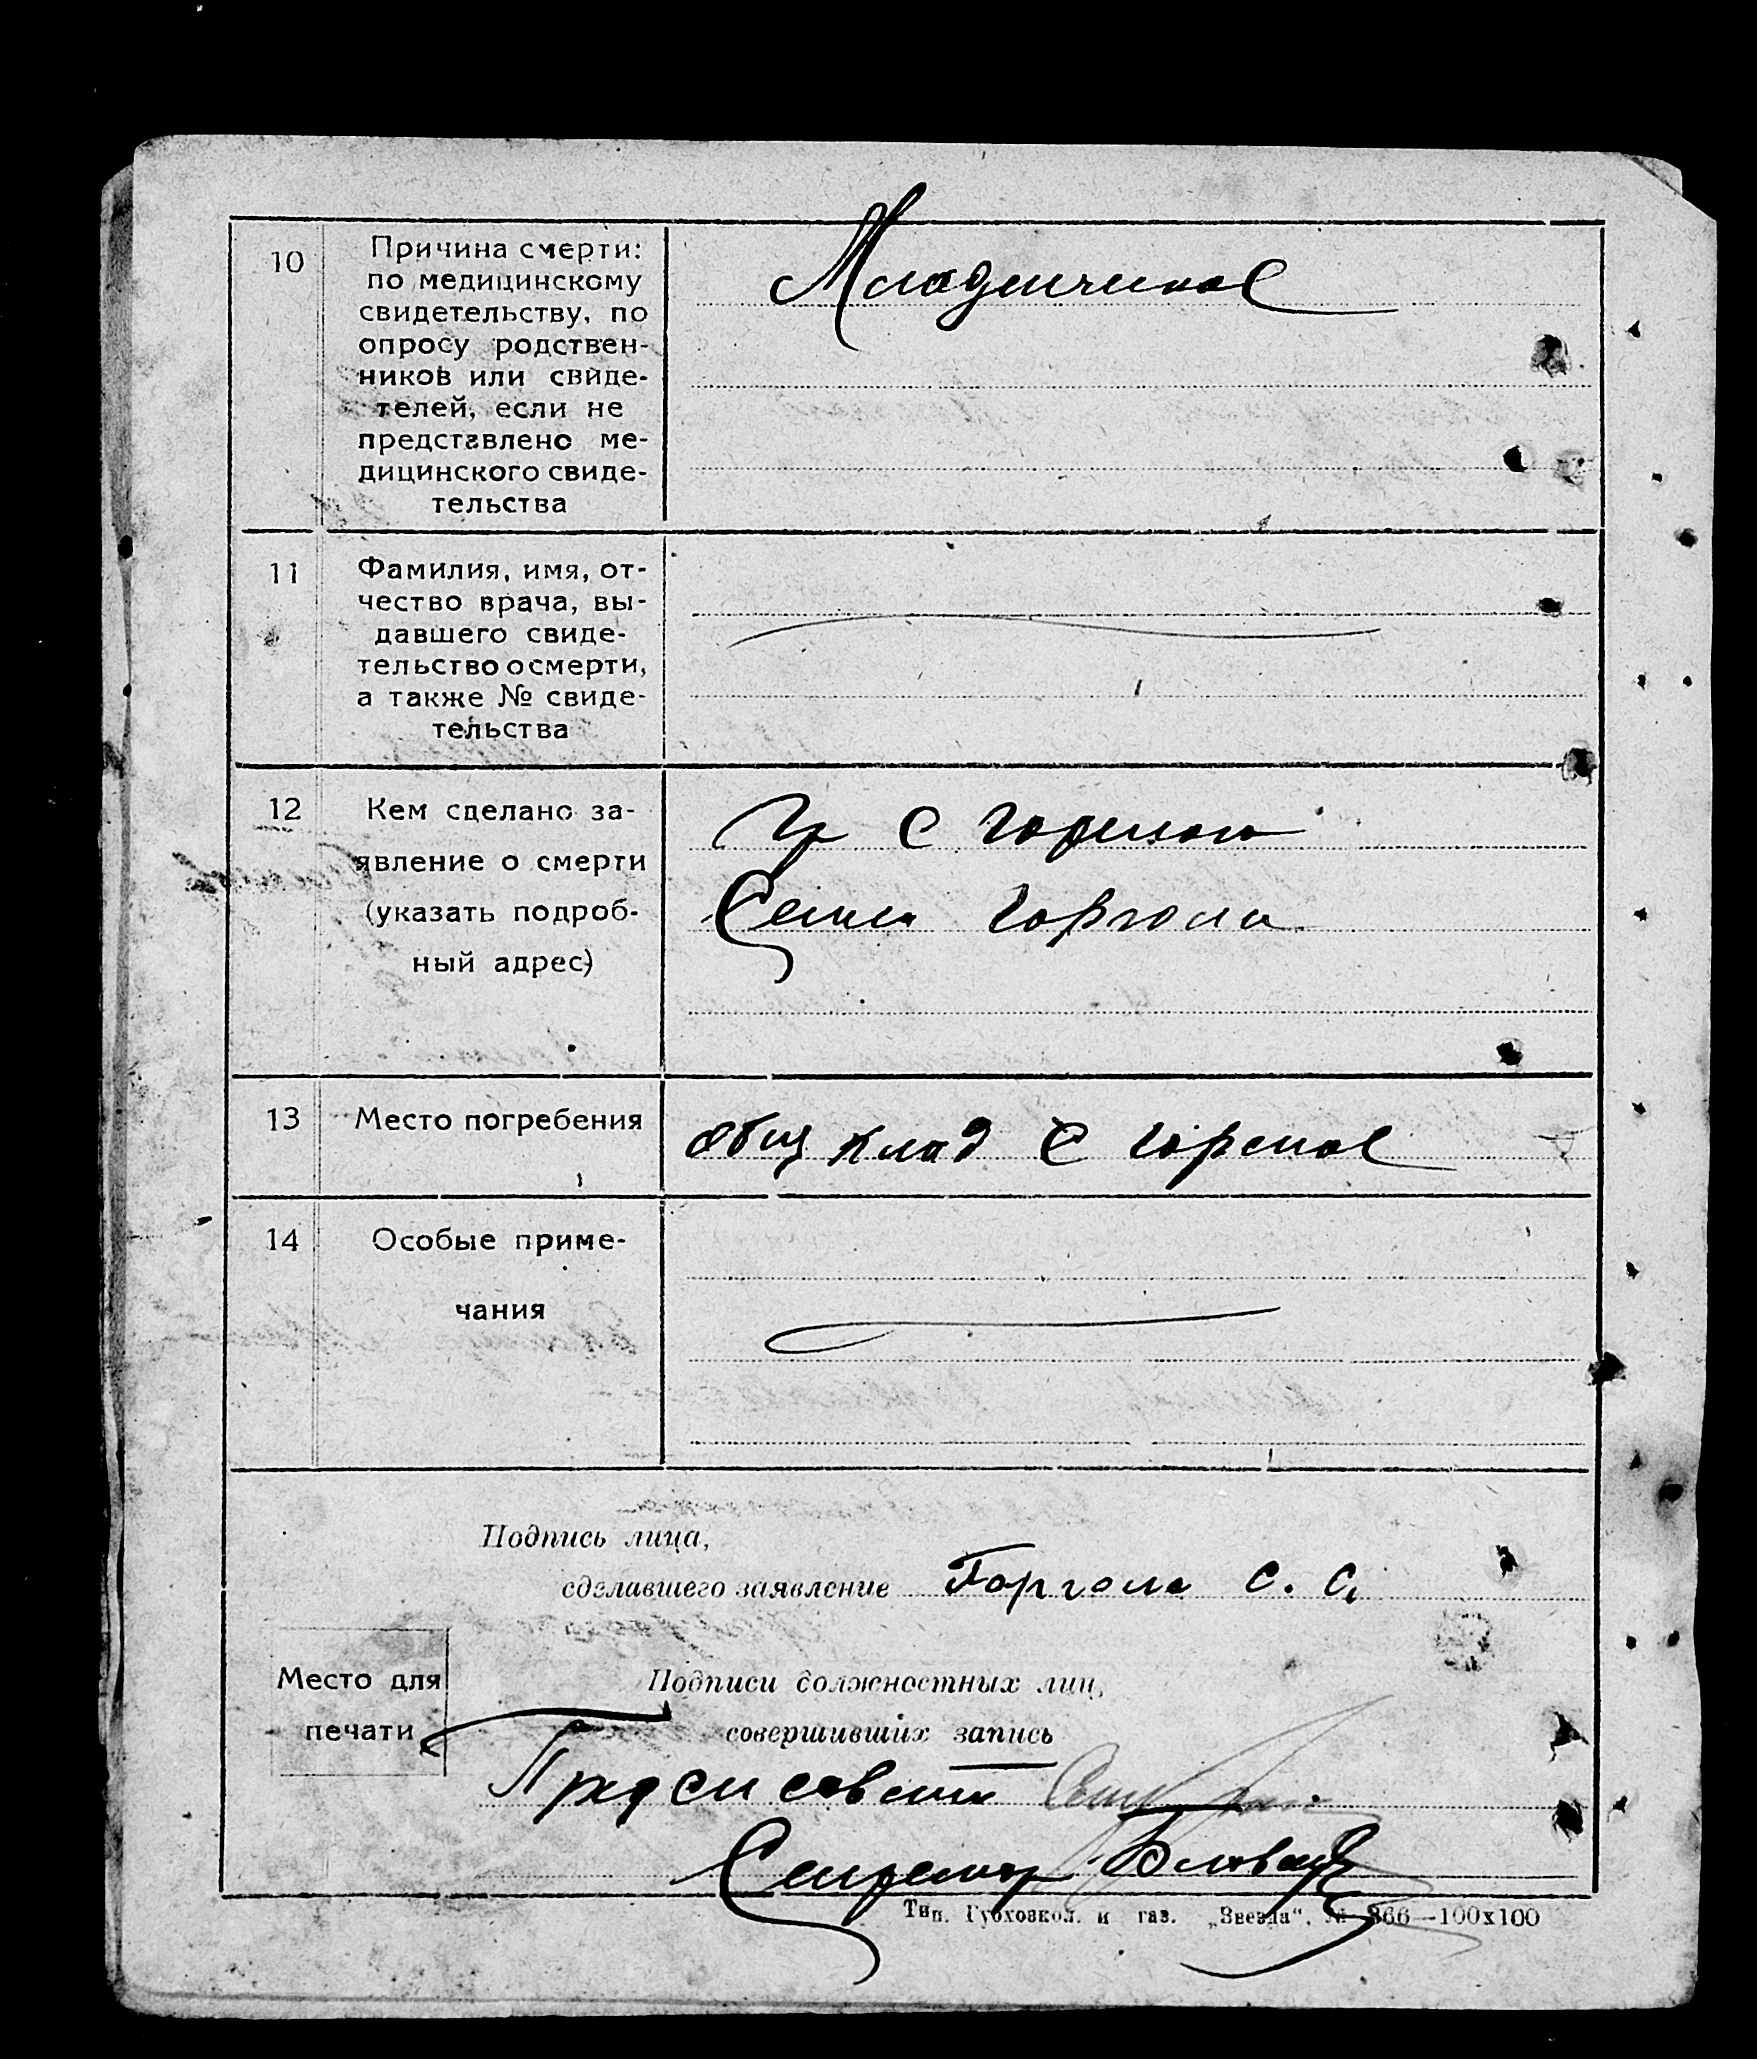 10
Причина смерти:
по медицинскому
свидетельству, по
опросу родствен-
ников или свиде-
телей, если не
представлено ме-
дицинского свиде-
тельства
Младенческое
11
Фамилия, имя, от-
чество врача, вы-
давшего свиде-
тельство о смерти,
а также № свиде-
тельства
12
Кем сделано за-
явление о смерти
(указать подроб-
ный адрес)
Гр С
Горгола
13
Место погребения
общ клад С Горское
14
Особые приме-
чания
Подпись лица,
сделавшего заявление Горгола С. С.
Место для
печати
Подписи должностных лиц,
совершивших запись
Пред
Секретарь
Тип. Губхозкол. и газ. „Звезда“. № 866—100х100